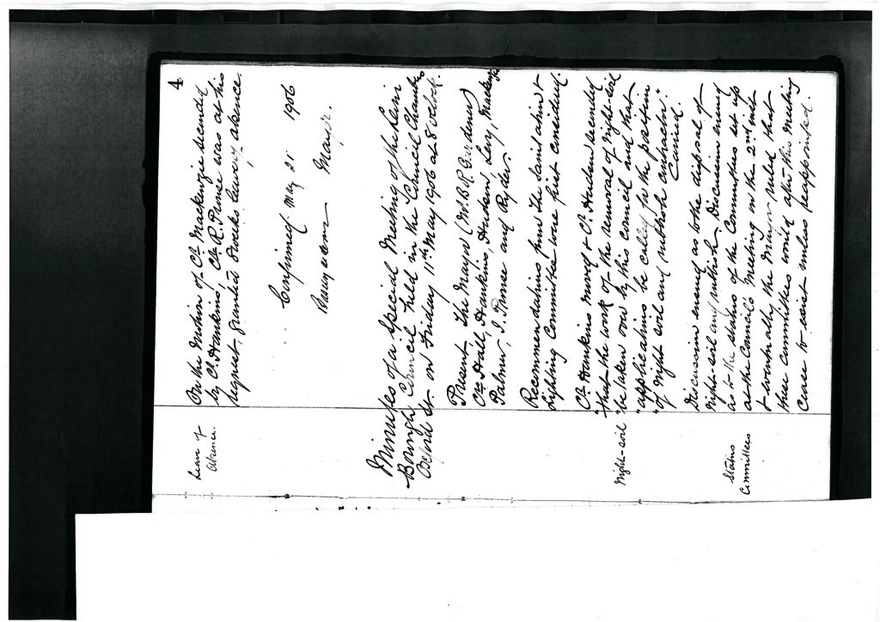 4
Leave of
absence.
On the motion of Cr. Mackenzie seconded
by Cr. Hankins, Cr. R. Prouse was at his
request, granted weeks leave of absence.
Confirmed May 21 1906
Mayor.
Minutes of a Special Meeting of the Levin
Borough Council held in the Council Chambers
Oxford St. on Friday 11th May 1906 at 8 o'clock.
Present The Mayor (Mr. B. R. Gardener)
Crs. Hall, Hankins, Hudson, Levy, Mackenzie
Palmer, J. Prouse and Ryder.
Recommendations from the Sanitation &
Lighting Committee were first considered.
Night-soil
Cr. Hankins moved & Cr. Hudson seconded
"that the work of the removal of night-soil
"be taken over by this council and that
"applications be called for the position
"of night soil and rubbish contractor."
Carried.
Discussion ensued as to the disposal of
night-soil and rubbish. Discussion ensued
Status
Committees
as to the status of the Committees set up
at the Council's Meeting on the 2nd inst
& eventually the Mayor ruled that
these committees would after this meeting
cease to exist unless reappointed.